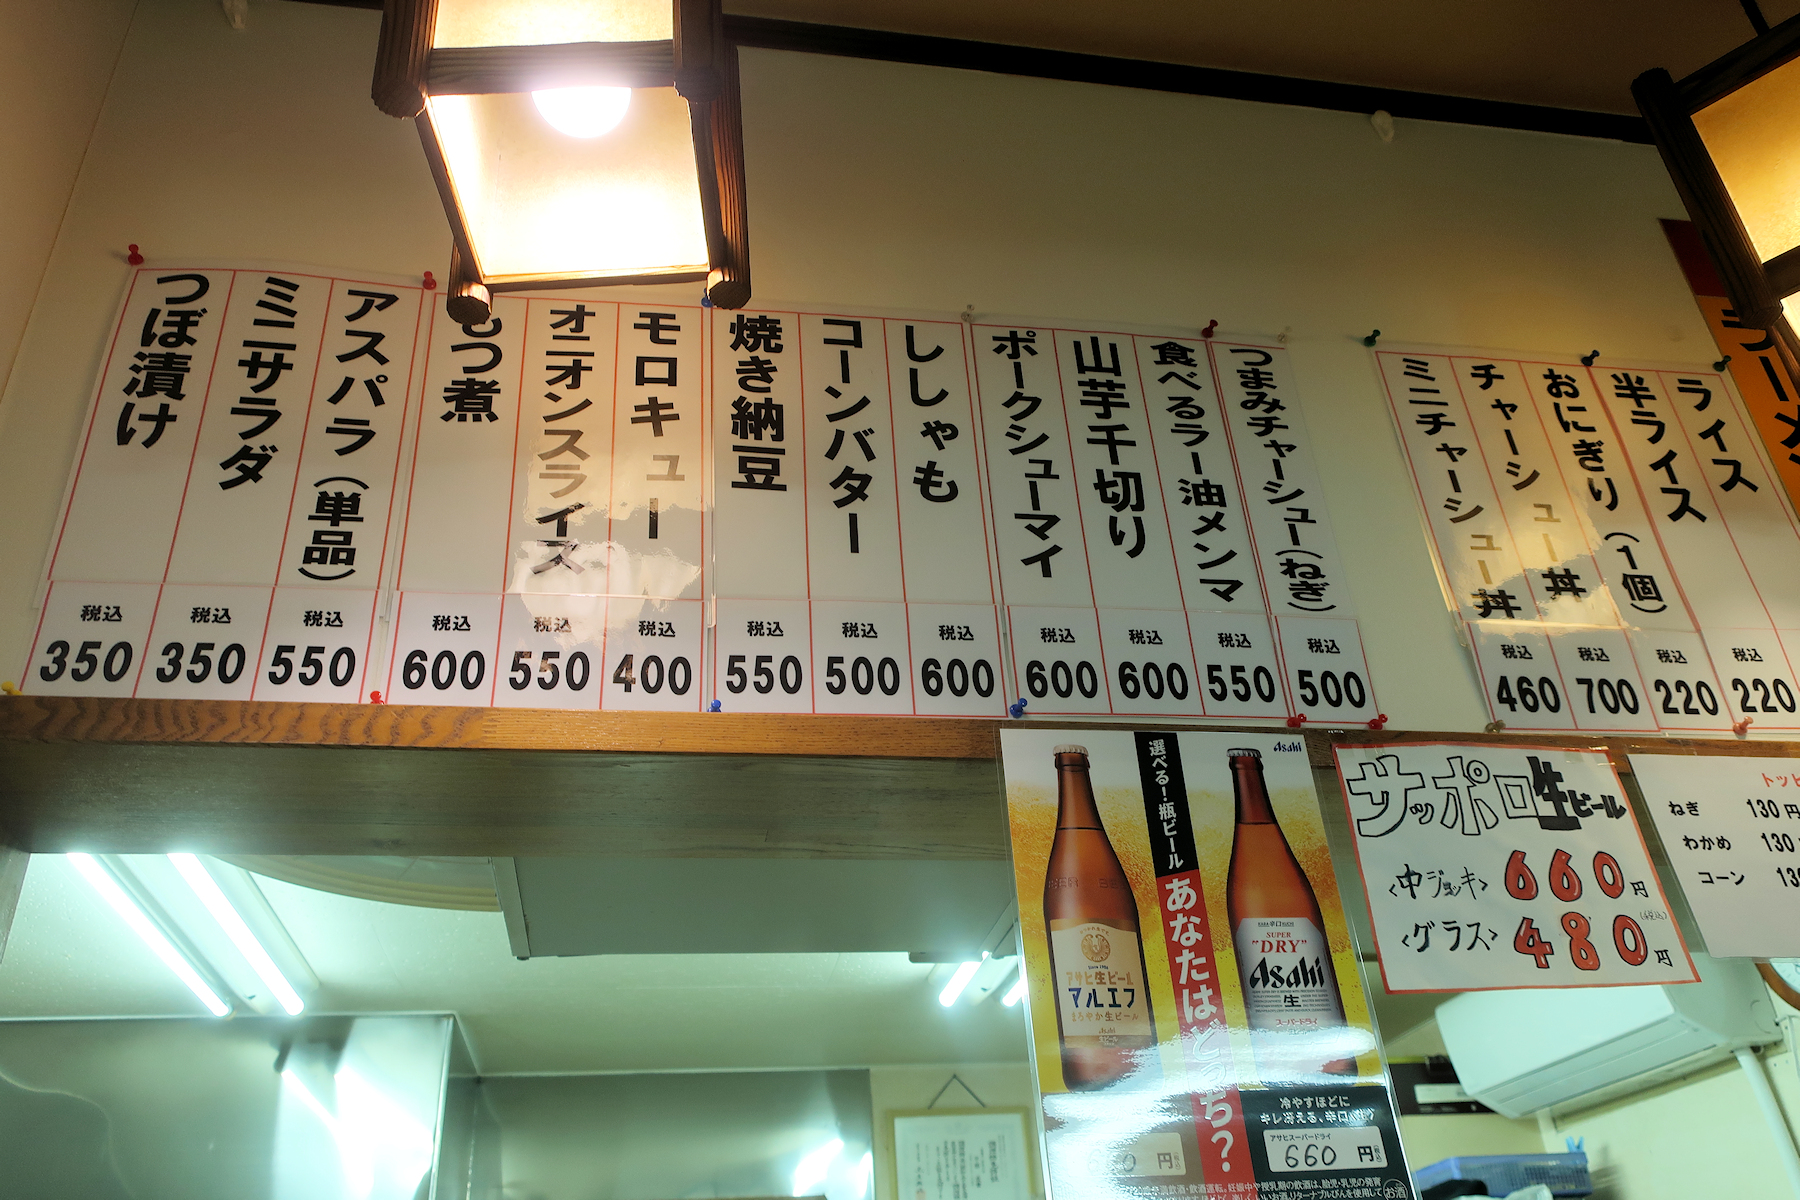 つぼ漬け
税込
350
ミニサラダ
税込
350
アスパラ(単品)
税込
550
もつ煮
税込
600
オニオンスライス
税込
550
モロキュー
税込
400
焼き納豆
税込
550
コーンバター
税込
500
ししゃも
税込
600
ポークシューマイ
税込
600
山芋千切り
税込
600
食べるラー油メンマ
税込
550
つまみチャーシュー(ねぎ)
税込
500
ミニチャーシュー丼
税込
460
チャーシュー丼
税込
700
おにぎり(1個)
税込
220
半ライス
ライス
税込
220
ラーメン
Asahi
選べる!瓶ビール
あなたはどっち?
アサヒ生ビール
マルエフ
まろやか生ビール
Asahi
SUPER
"DRY"
Asahi
生
スーパードライ
冷やすほどに
キレ冴える、辛口
アサヒスーパードライ
660円
円
サッポロ生ビール
<中ジョッキ> 660円
<グラス> 480円
(税込)
トッピ
ねぎ 130円
わかめ 130
コーン 130